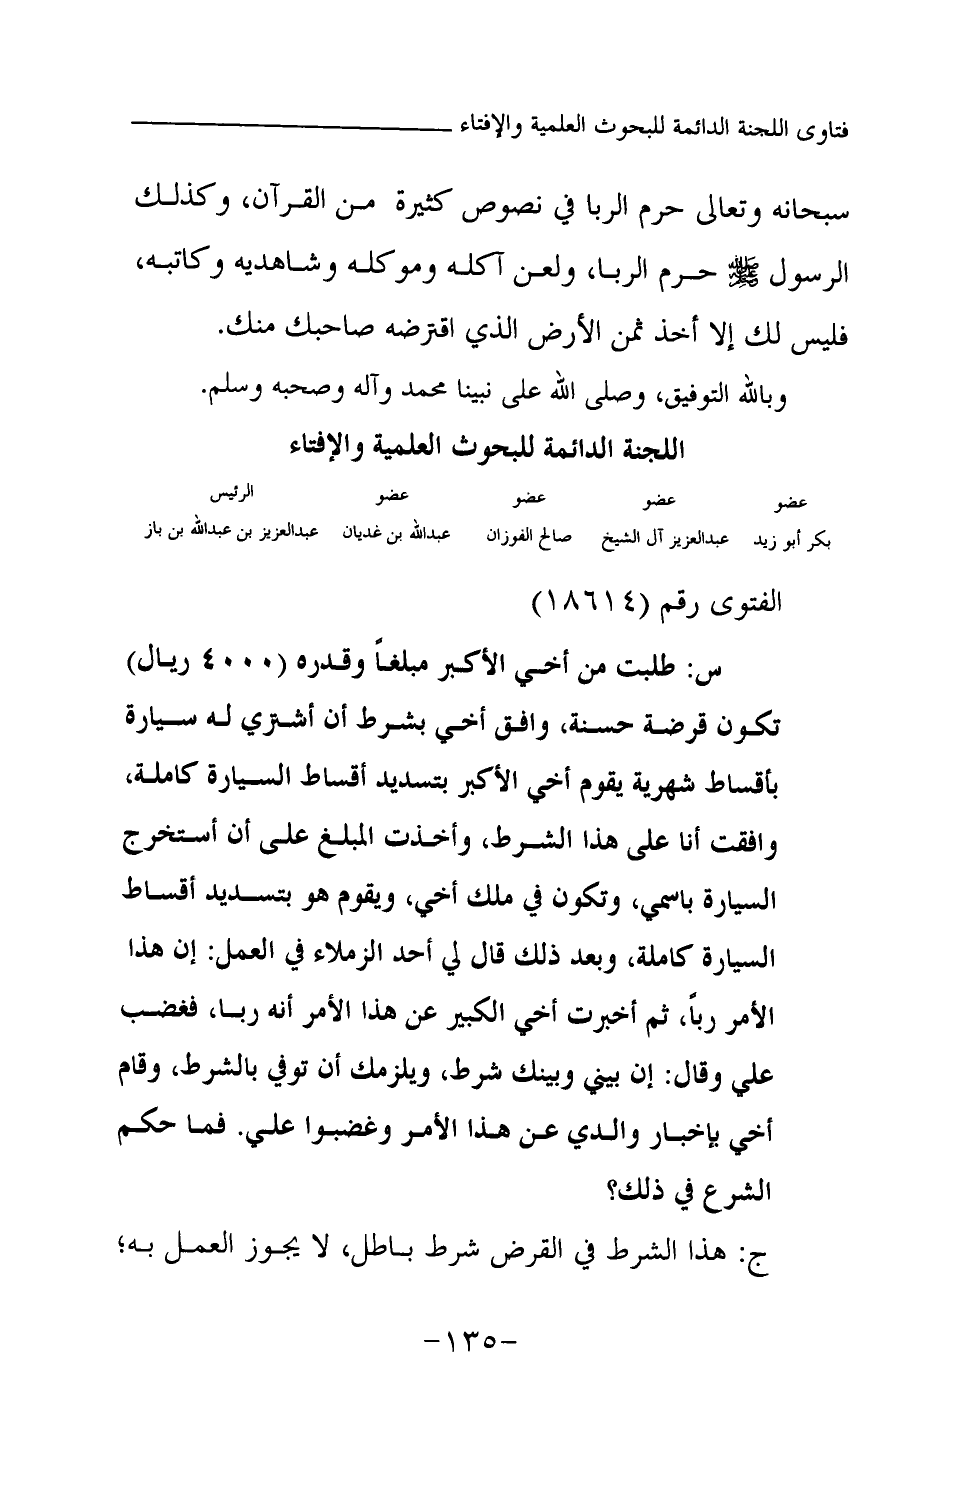 فتاوى اللجنة الدائمة للبحوث العلمية والإفتاء
سبحانه وتعالى حرم الربا في نصوص كثيرة من القرآن، وكذلك
الرسول ﷺ حرم الربا، ولعن آكله وموكله وشاهديه وكاتبه،
فليس لك إلا أخذ ثمن الأرض الذي اقترضه صاحبك منك.
وبالله التوفيق، وصلى الله على نبينا محمد وآله وصحبه وسلم.
اللجنة الدائمة للبحوث العلمية والإفتاء
عضو عضو عضو عضو الرئيس
بكر أبو زيد عبدالعزيز آل الشيخ صالح الفوزان عبدالله بن غديان عبدالعزيز بن عبدالله بن باز
الفتوى رقم (١٨٦١٤)
س: طلبت من أخي الأكبر مبلغاً وقدره (٤٠٠٠ ريال)
تكون قرضة حسنة، وافق أخي بشرط أن أشتري له سيارة
بأقساط شهرية يقوم أخي الأكبر بتسديد أقساط السيارة كاملة،
وافقت أنا على هذا الشرط، وأخذت المبلغ على أن أستخرج
السيارة باسمي، وتكون في ملك أخي، ويقوم هو بتسديد أقساط
السيارة كاملة، وبعد ذلك قال لي أحد الزملاء في العمل: إن هذا
الأمر رباً، ثم أخبرت أخي الكبير عن هذا الأمر أنه ربا، فغضب
علي وقال: إن بيني وبينك شرط، ويلزمك أن توفي بالشرط، وقام
أخي بإخبار والدي عن هذا الأمر وغضبوا علي. فما حكم
الشرع في ذلك؟
ج: هذا الشرط في القرض شرط باطل، لا يجوز العمل به؛
-١٣٥-